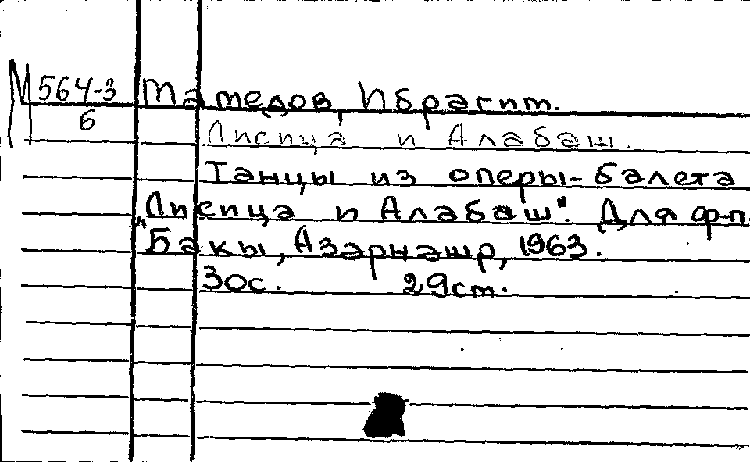 М 564-3
6
Мамедов, Ибрагим.
Лисица и Алабаш.
Танцы из оперы-балета
„Лисица и Алабаш". Для ф-п.
Бакы, Азәрнәшр, 1963.
30с. 29см.